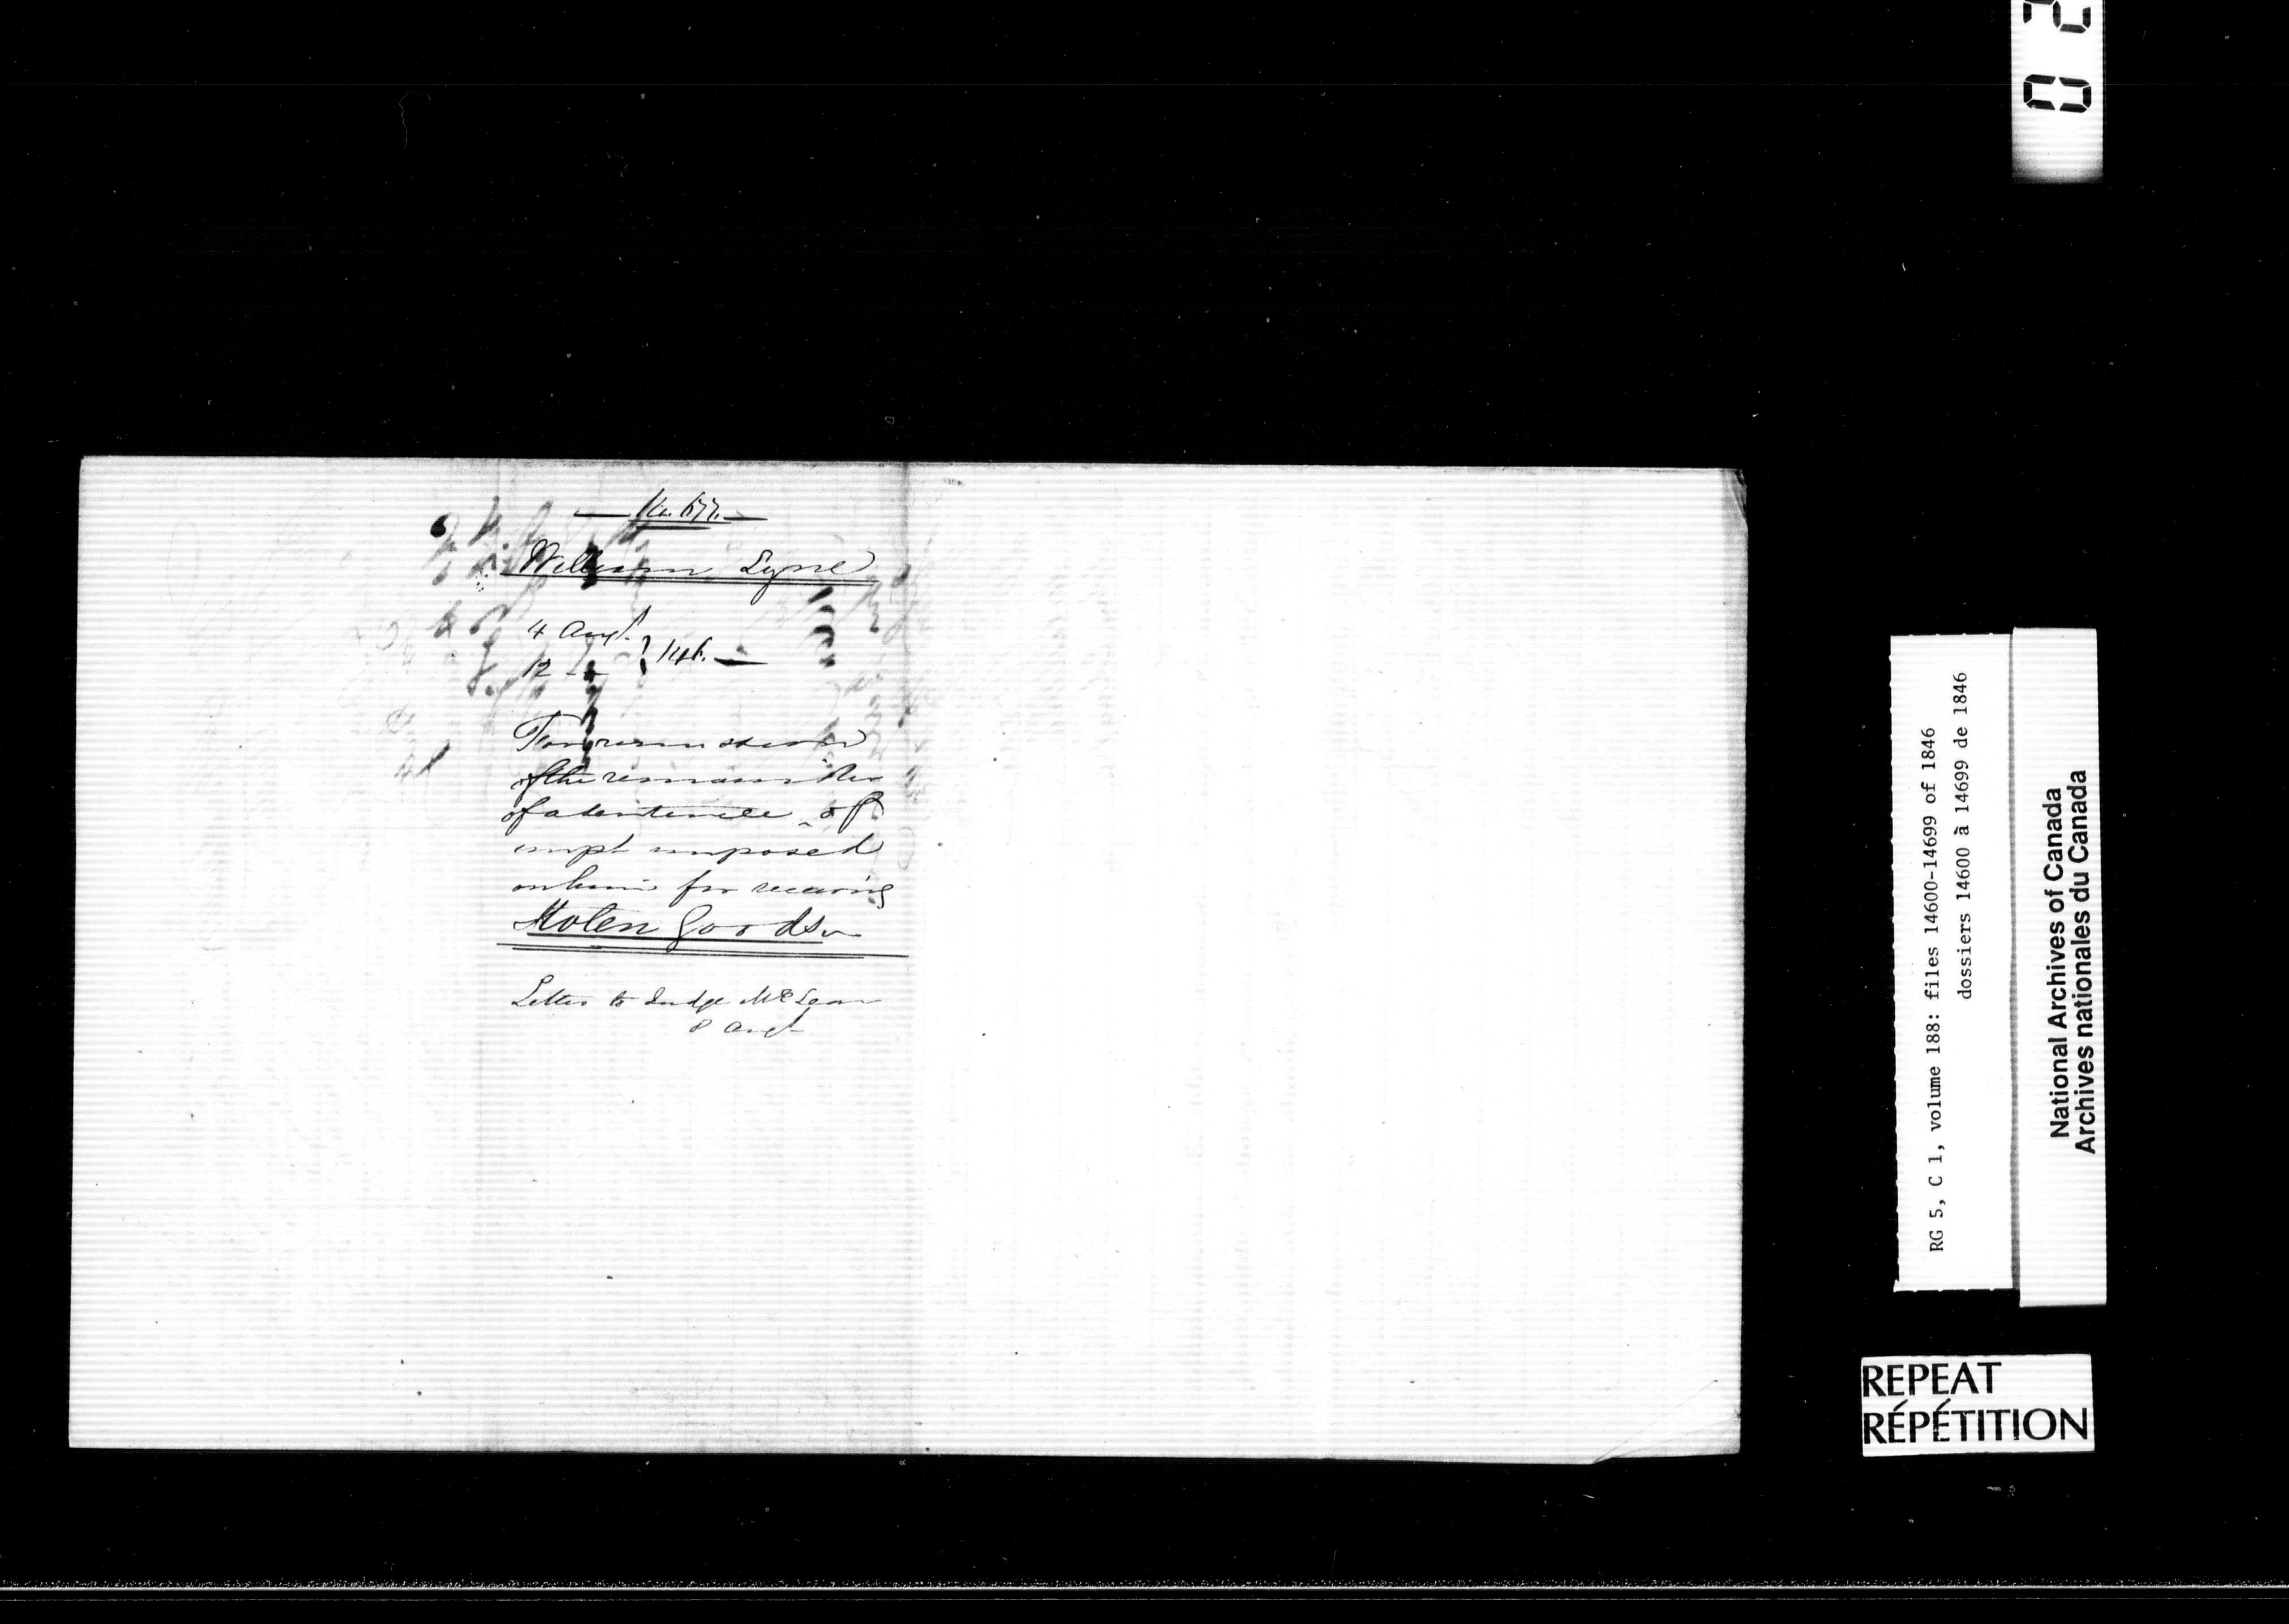 William Lyne
4 Augt.
12 - "- } 1846. —
For remission
of the remainder
of a sentence of
impt imposed
on him for receiving
Stolen Goods
Letter to Judge McLean
8 Augt
RG 5, C 1, volume 188: files 14600-14699 of 1846
dossiers 14600 à 14699 de 1846
National Archives of Canada
Archives nationales du Canada
REPEAT
RÉPÉTITION
0 2